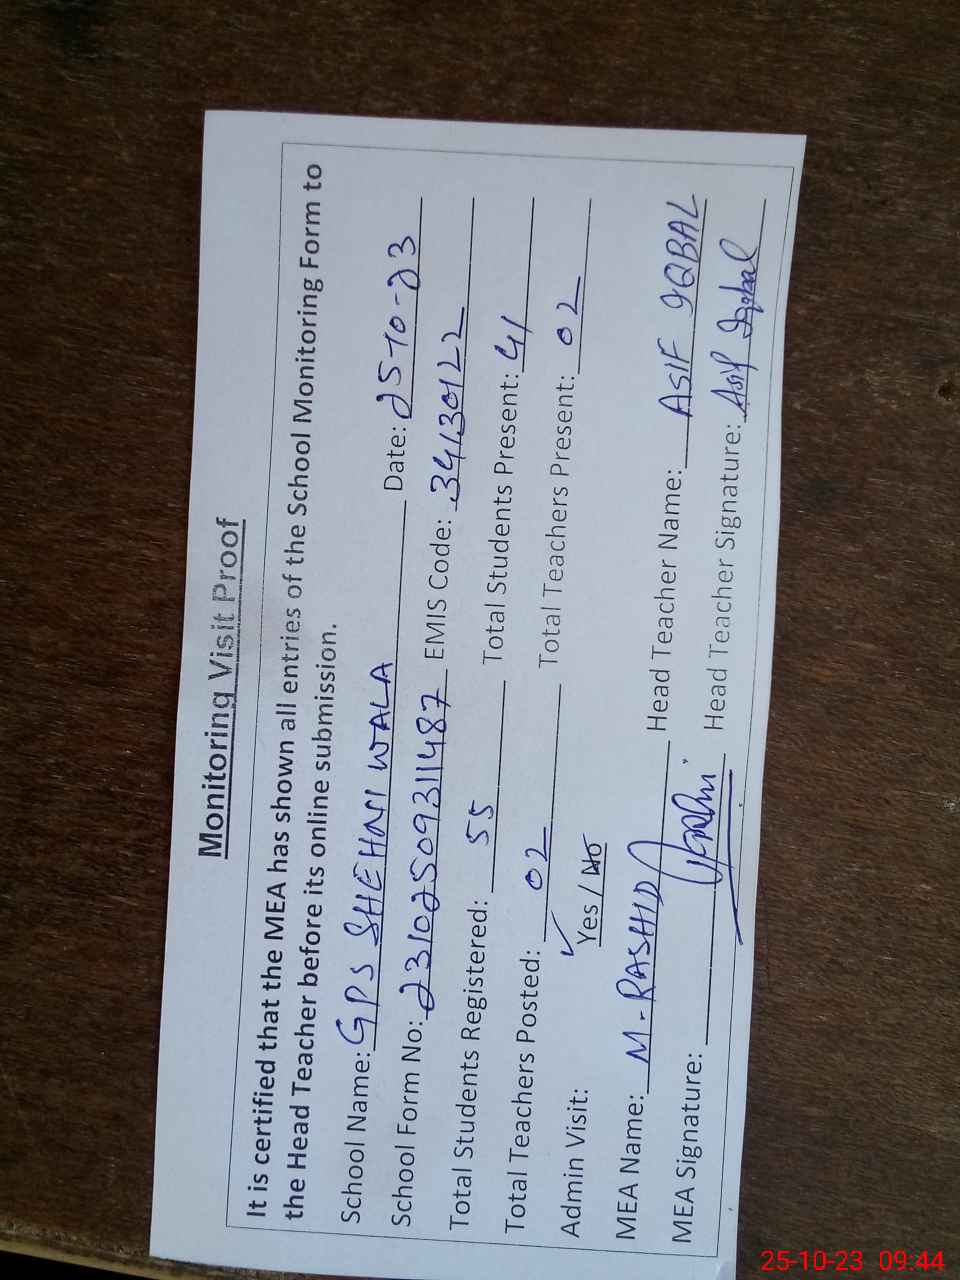 Monitoring Visit Proof
It is certified that the MEA has shown all entries of the School Monitoring Form to
the Head Teacher before its online submission.
School Name: GPS SHEHNI WALA Date: 25-10-23
School Form No: 23102509311487 EMIS Code: 34130122
Total Students Registered: 55 Total Students Present: 41
Total Teachers Posted: 02 Total Teachers Present: 02
Admin Visit: ✓ Yes / No
MEA Name: M-RASHID Head Teacher Name: ASIF IQBAL
MEA Signature: Head Teacher Signature: Asif Iqbal
25-10-23 09:44